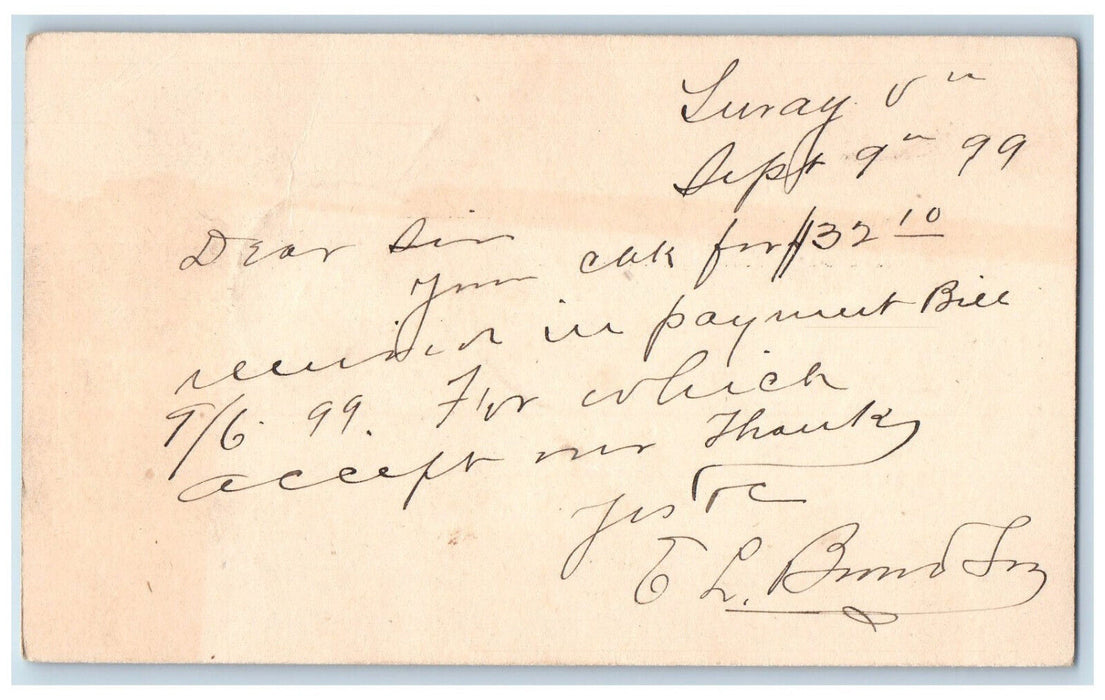 Luray Va
Sept 9th 99
Dear Sir
Your chk for $32 10
received in payment Bill
9/6 99. For which
accept our Thanks
Yrs &c
E L.